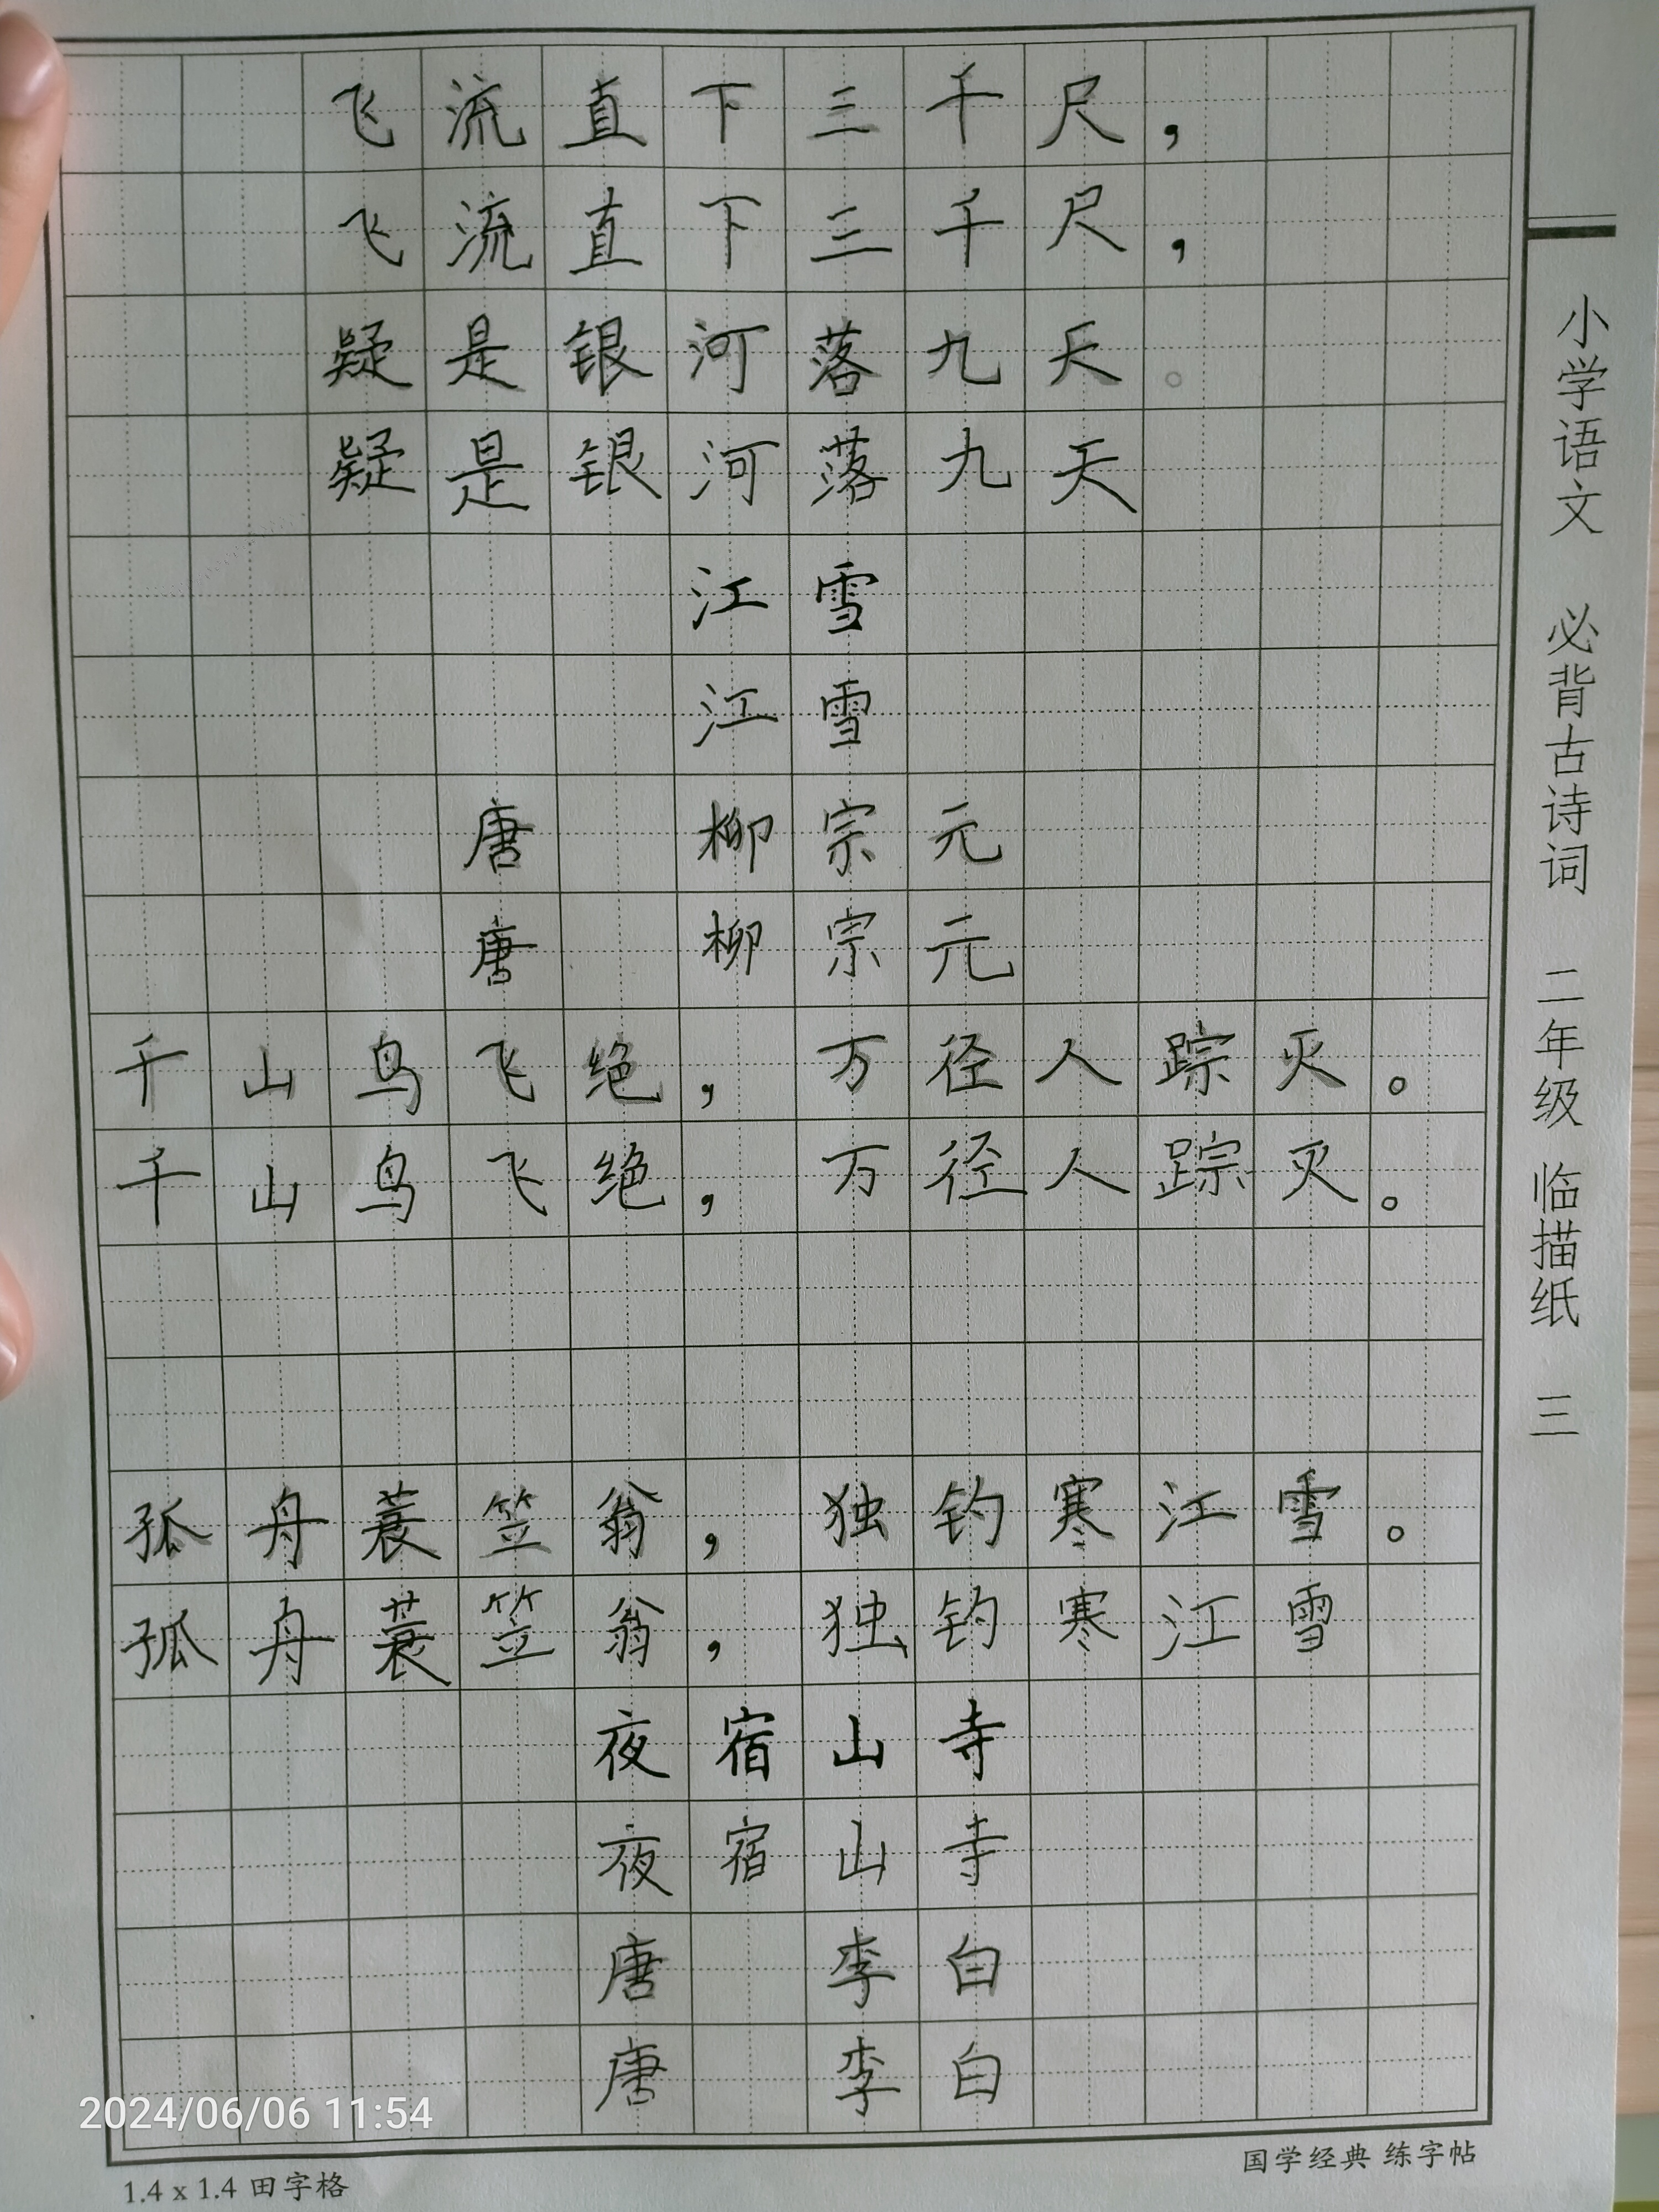 飞流直下三千尺，
飞流直下三千尺，
疑是银河落九天。
疑是银河落九天
江雪
江雪
唐 柳宗元
唐 柳宗元
千山鸟飞绝，万径人踪灭。
千山鸟飞绝，万径人踪灭。
孤舟蓑笠翁，独钓寒江雪。
孤舟蓑笠翁，独钓寒江雪
夜宿山寺
夜宿山寺
唐 李白
唐 李白
小学语文 必背古诗词 二年级 临描纸 三
2024/06/06 11:54
1.4 x 1.4 田字格
国学经典 练字帖